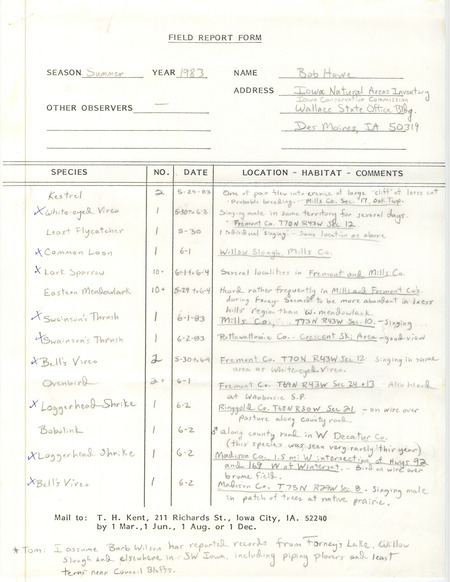 FIELD REPORT FORM
SEASON Summer YEAR 1983 NAME Bob Howe
ADDRESS Iowa Natural Areas Inventory
Iowa Conservation Commission
OTHER OBSERVERS — Wallace State Office Bldg.
Des Moines, IA 50319
SPECIES NO. DATE LOCATION - HABITAT - COMMENTS
Kestrel 2 5-29-83 One of pair flew into crevice of large "cliff" of loess cut
- Probable breeding. - Mills Co. Sec. 17, Oak Twp.
x White-eyed Vireo 1 5-30 to 6-3 Singing male in same territory for several days.
- Fremont Co. T70N R43W Sec 12
Least Flycatcher 1 5-30 1 individual singing - Same location as above
x Common Loon 1 6-1 Willow Slough, Mills Co.
x Lark Sparrow 10+ 6-1 to 6-4 Several localities in Fremont and Mills Co.
Eastern Meadowlark 10+ 5-29 to 6-4 Heard rather frequently in Mills and Fremont Co's
during foray. Seems to be more abundant in loess
hills region than W. meadowlark
x Swainson's Thrush 1 6-1-83 Mills Co., T73N R43W Sec. 10 - Singing
x Swainson's Thrush 1 6-2-83 Pottawattamie Co. - Crescent Ski Area - good view
x Bell's Vireo 2 5-30 to 6-4 Fremont Co. T70N R43W Sec 12 - Singing in same
area as White-eyed Vireo.
Ovenbird 2+ 6-1 Fremont Co. T69N R43W Sec 24 + 13 - Also heard
at Waubonsie S.P.
x Loggerhead Shrike 1 6-2 Ringgold Co. T68N R30W Sec 21 - on wire over
Pasture along county road.
Bobolink 1 6-2 ♂ along county road in W Decatur Co.
(this species was seen very rarely this year)
x Loggerhead Shrike 1 6-2 Madison Co. 1.5 mi W intersection of Hwys 92
and 169 W of Winterset. - Bird on wire over
brome field.
x Bell's Vireo 1 6-2 Madison Co. T75N R29W Sec 8 - Singing male
in patch of trees at native prairie.
Mail to: T. H. Kent, 211 Richards St., Iowa City, IA. 52240
by 1 Mar., 1 Jun., 1 Aug. or 1 Dec.
* Tom: I assume Barb Wilson has reported records from Forney's Lake, Willow
Slough and elsewhere in SW Iowa, including piping plovers and least
terns near Council Bluffs.